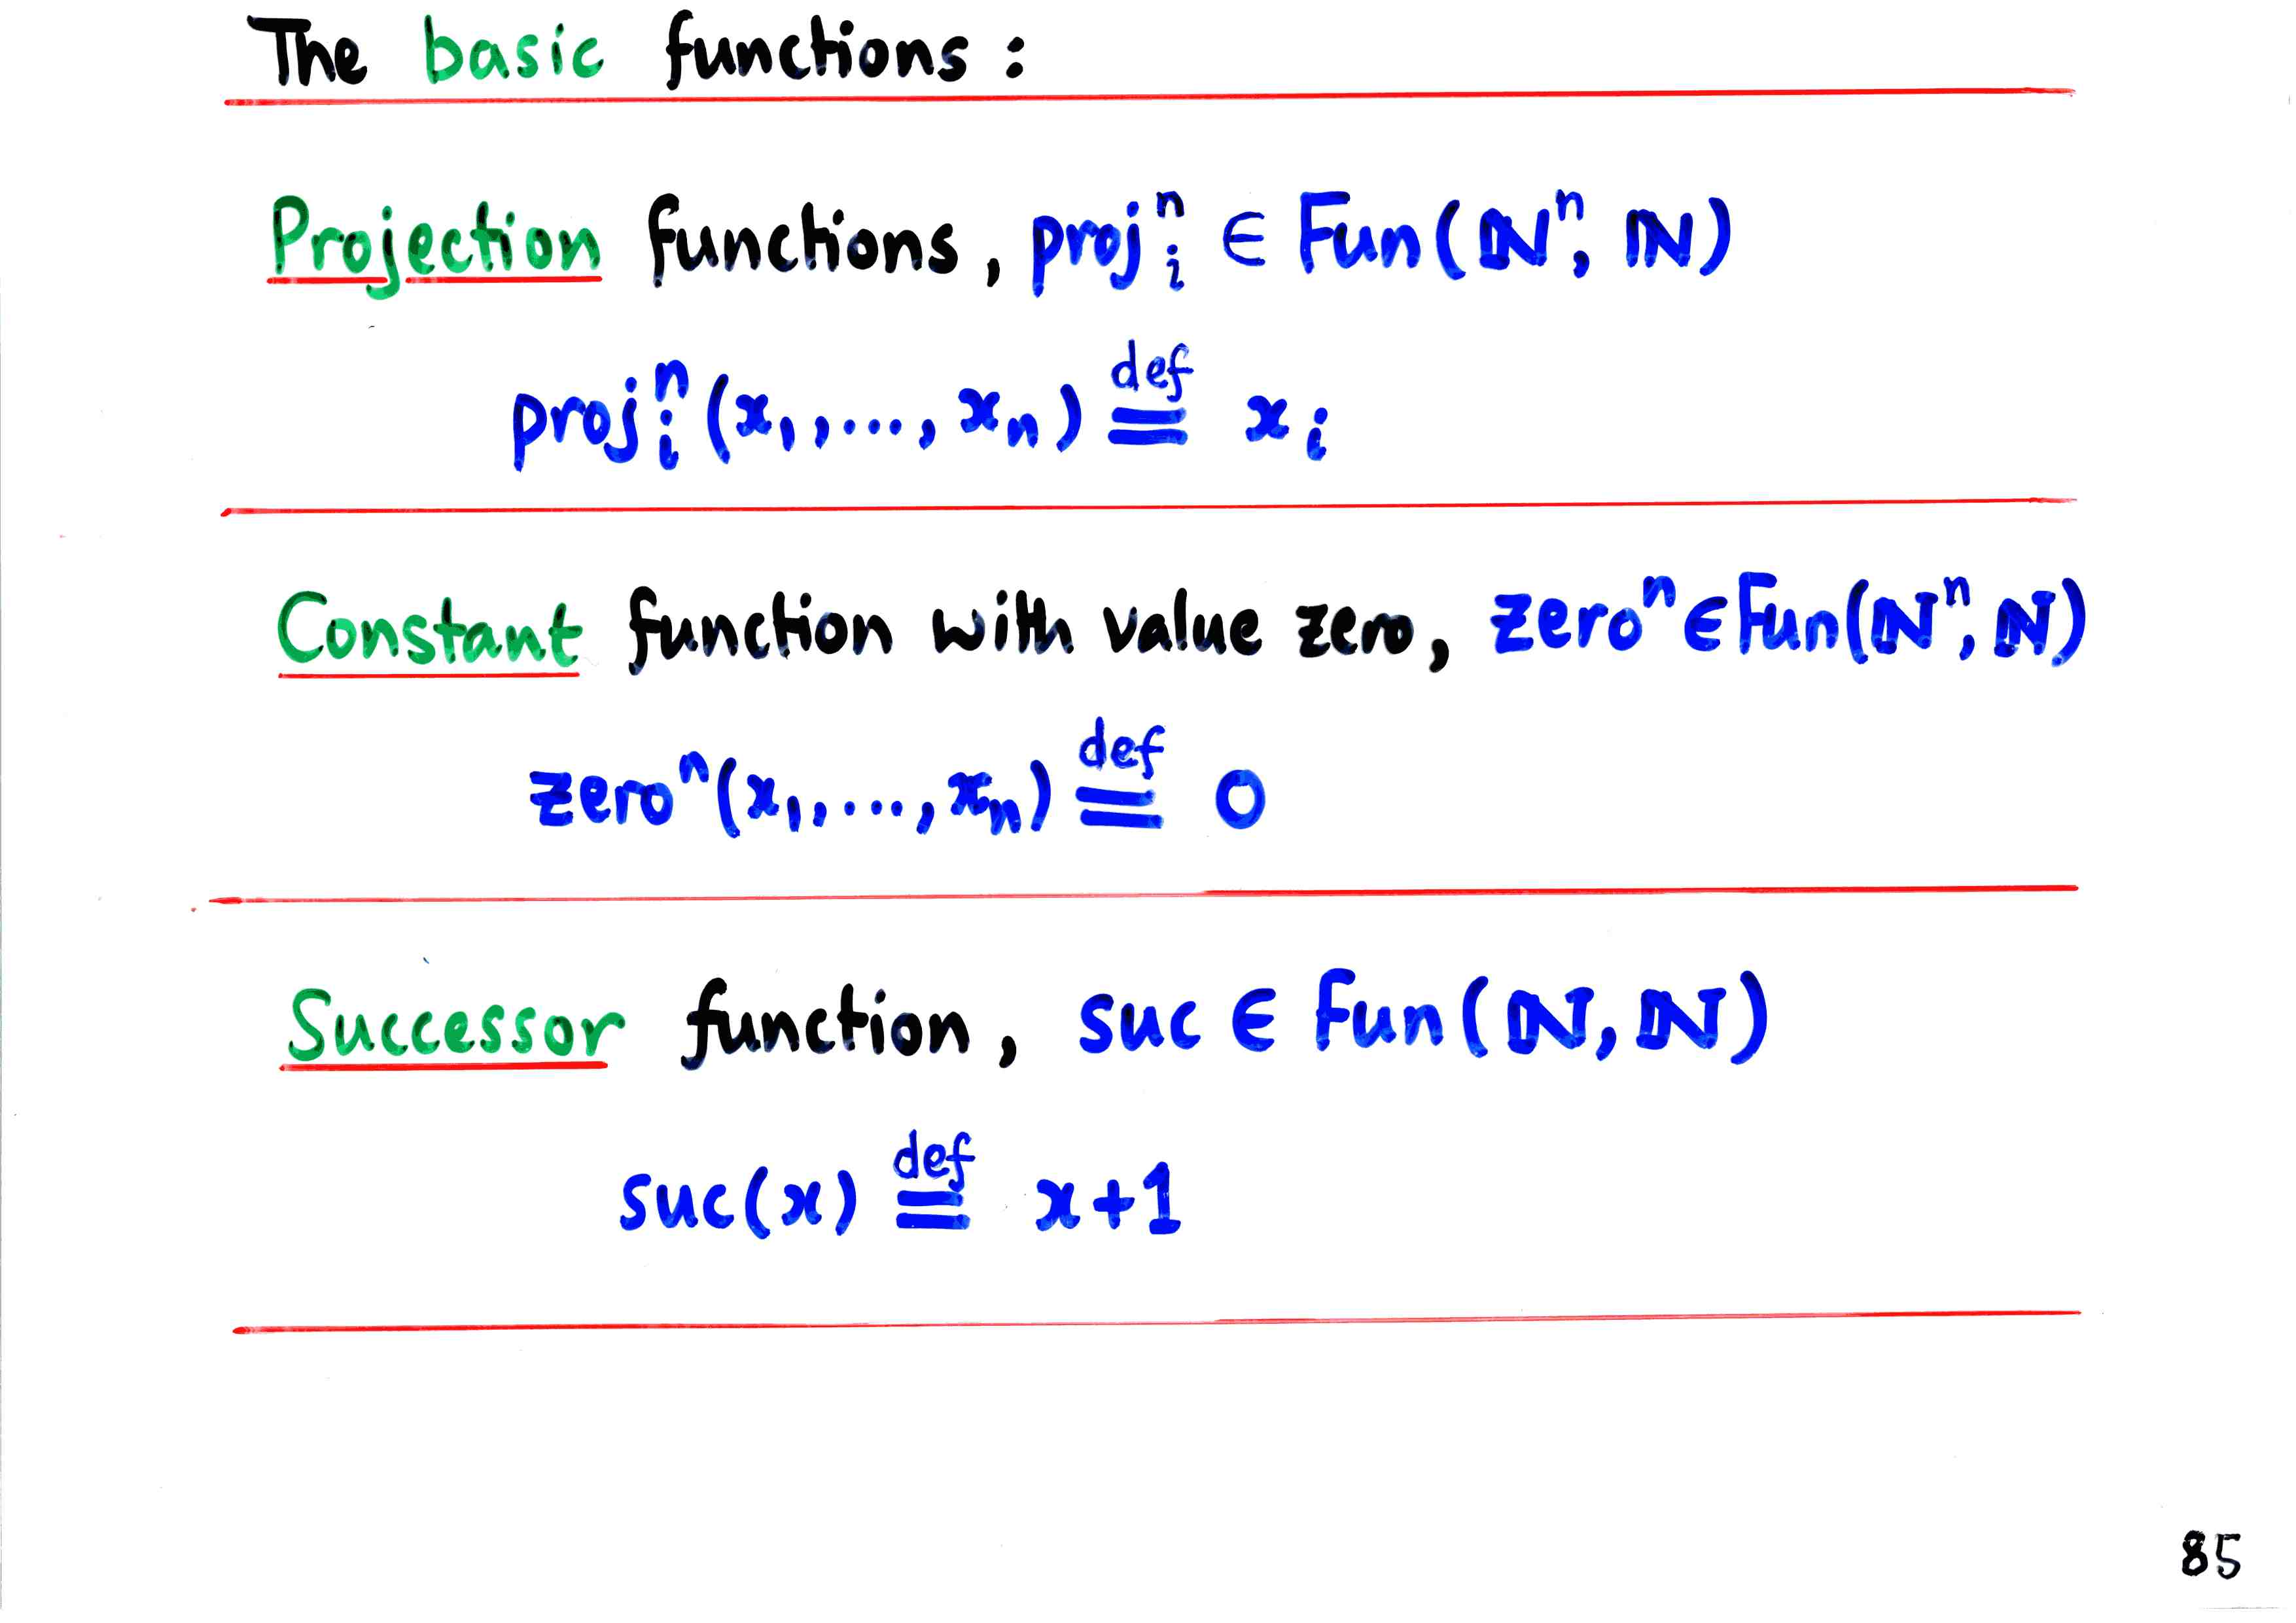 The basic functions :
Projection functions, projⁿᵢ ∈ Fun(ℕⁿ, ℕ)
projⁿᵢ(x₁,...,xₙ) ≝ xᵢ
Constant function with value zero, zeroⁿ ∈ Fun(ℕⁿ, ℕ)
zeroⁿ(x₁,...,xₙ) ≝ 0
Successor function, suc ∈ Fun(ℕ, ℕ)
suc(x) ≝ x+1
85